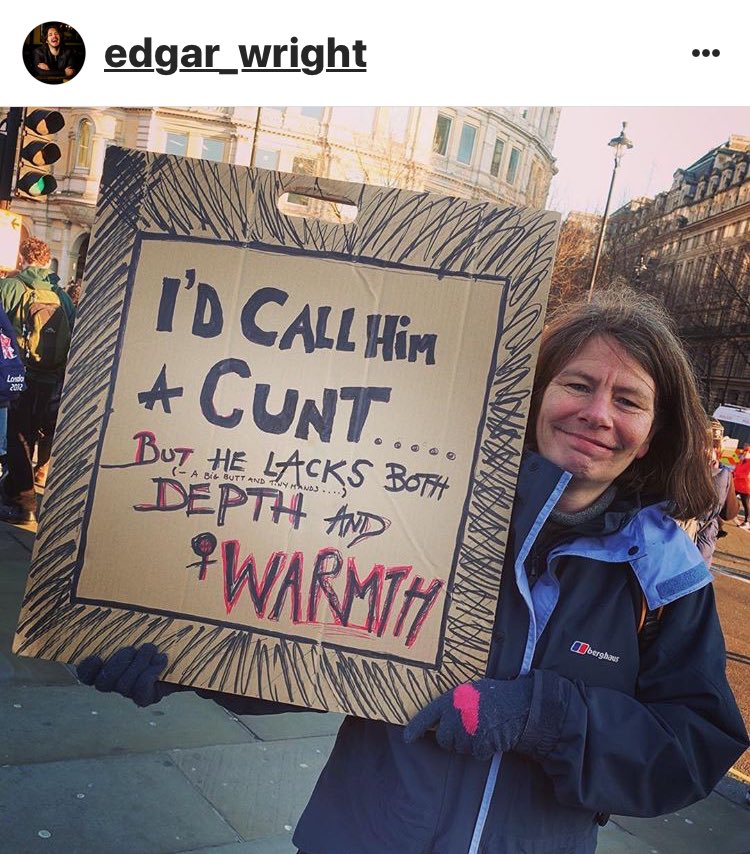 edgar_wright
I'D CALL HiM
A CUNT.....
BUT HE LACKS BOTH
(- A BIG BUTT AND TINY HANDS....)
DEPTH AND
WARMTH
berghaus
London
2012